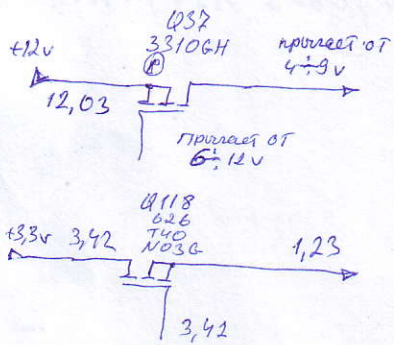 Q37
3310GH
P
+12v
12,03
прыгает от
4÷9v
прыгает от
6÷12v
Q118
626
T40
N03G
+3,3v
3,42
1,23
3,41